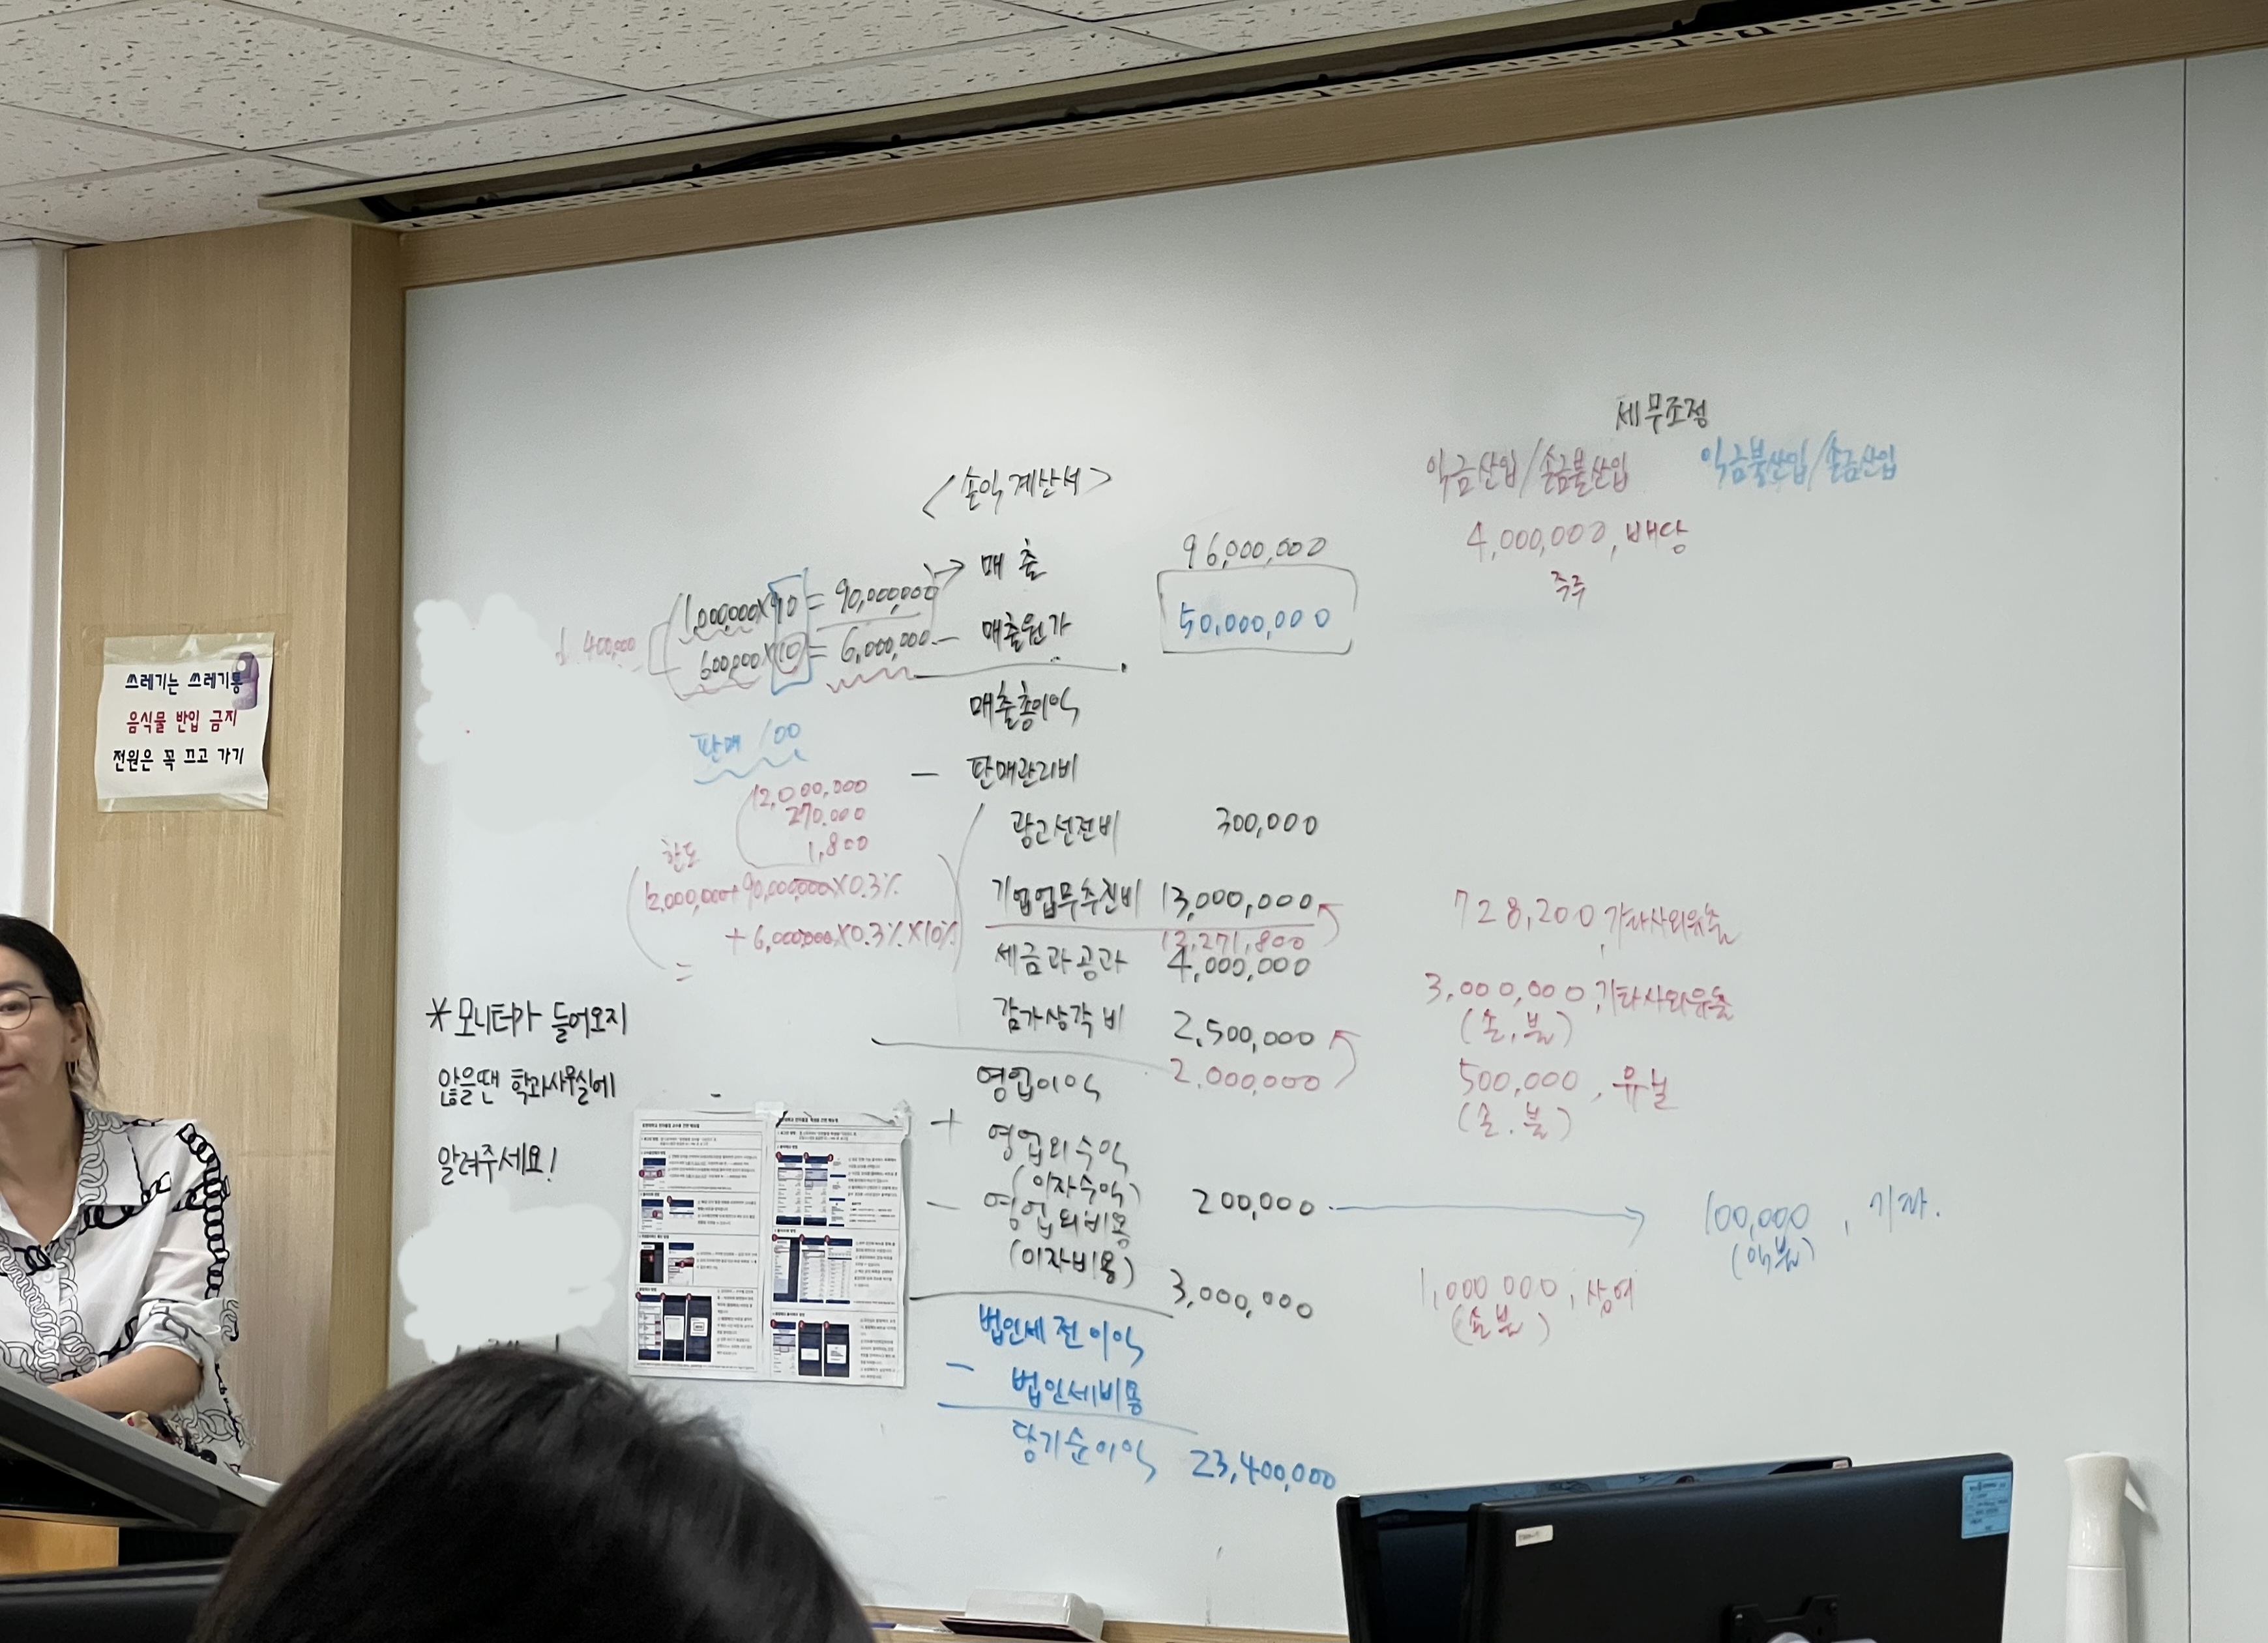 쓰레기는 쓰레기통
음식물 반입 금지
전원은 꼭 끄고 가기
<손익계산서>
1,000,000×90 = 90,000,000 → 매출 96,000,000
400,000
600,000×10 = 6,000,000
- 매출원가 50,000,000
매출총이익
판매 100
- 판매관리비
12,000,000
270,000
1,800
광고선전비 300,000
한도
12,000,000+90,000,000×0.3%
+6,000,000×0.3%×10%
=
기업업무추진비 13,000,000
12,271,800
세금과공과 4,000,000
감가상각비 2,500,000
2,000,000
영업이익
+ 영업외수익
(이자수익) 200,000
- 영업외비용
(이자비용) 3,000,000
법인세전이익
- 법인세비용
당기순이익 23,400,000
세무조정
익금산입/손금불산입 익금불산입/손금산입
4,000,000, 배당
주주
728,200, 기타사외유출
3,000,000, 기타사외유출
(손.불)
500,000, 유보
(손.불)
100,000, 기타.
(익불)
1,000,000, 상여
(손불)
*모니터가 들어오지
않을땐 학과사무실에
알려주세요!